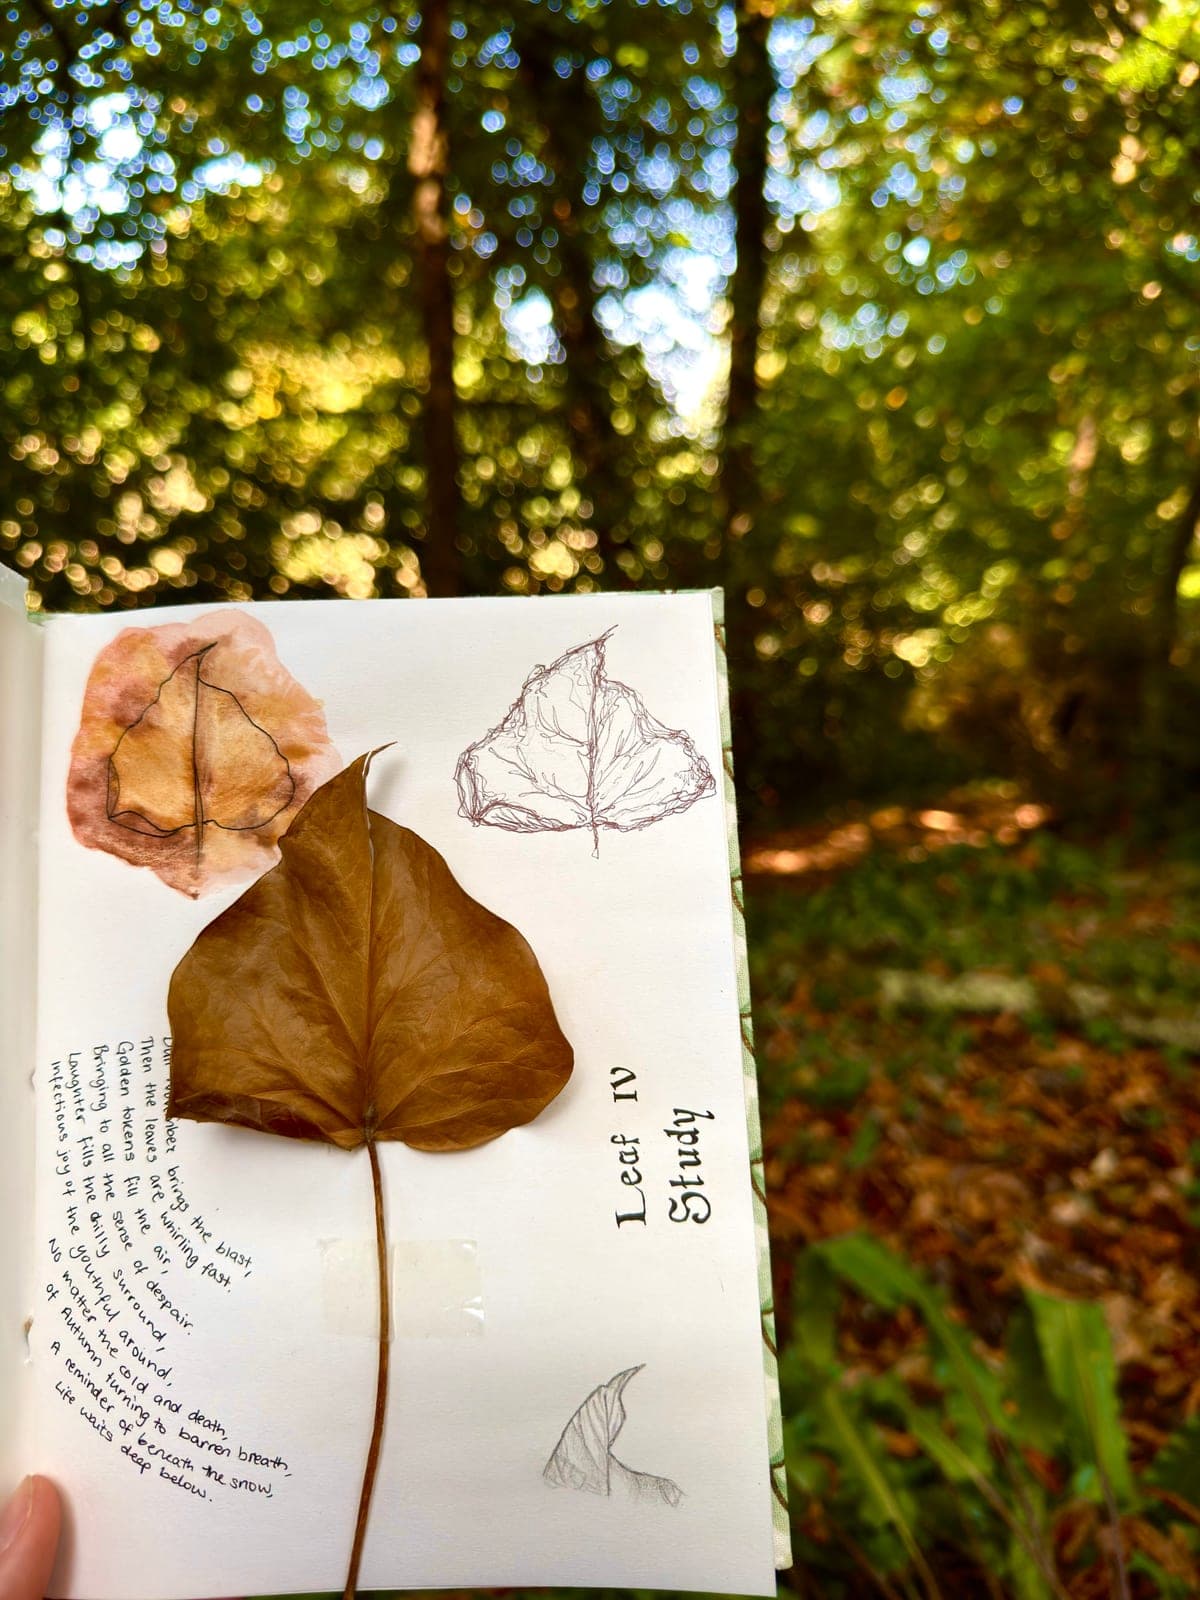 Leaf IV
Study
brings the blast,
Then the leaves are whirling fast.
Golden tokens fill the air,
Bringing to all the sense of despair.
Laughter fills the chilly surround,
Infectious joy of the youthful around,
No matter the cold and death,
of Autumn turning to barren breath,
A reminder of beneath the snow,
Life waits deep below.